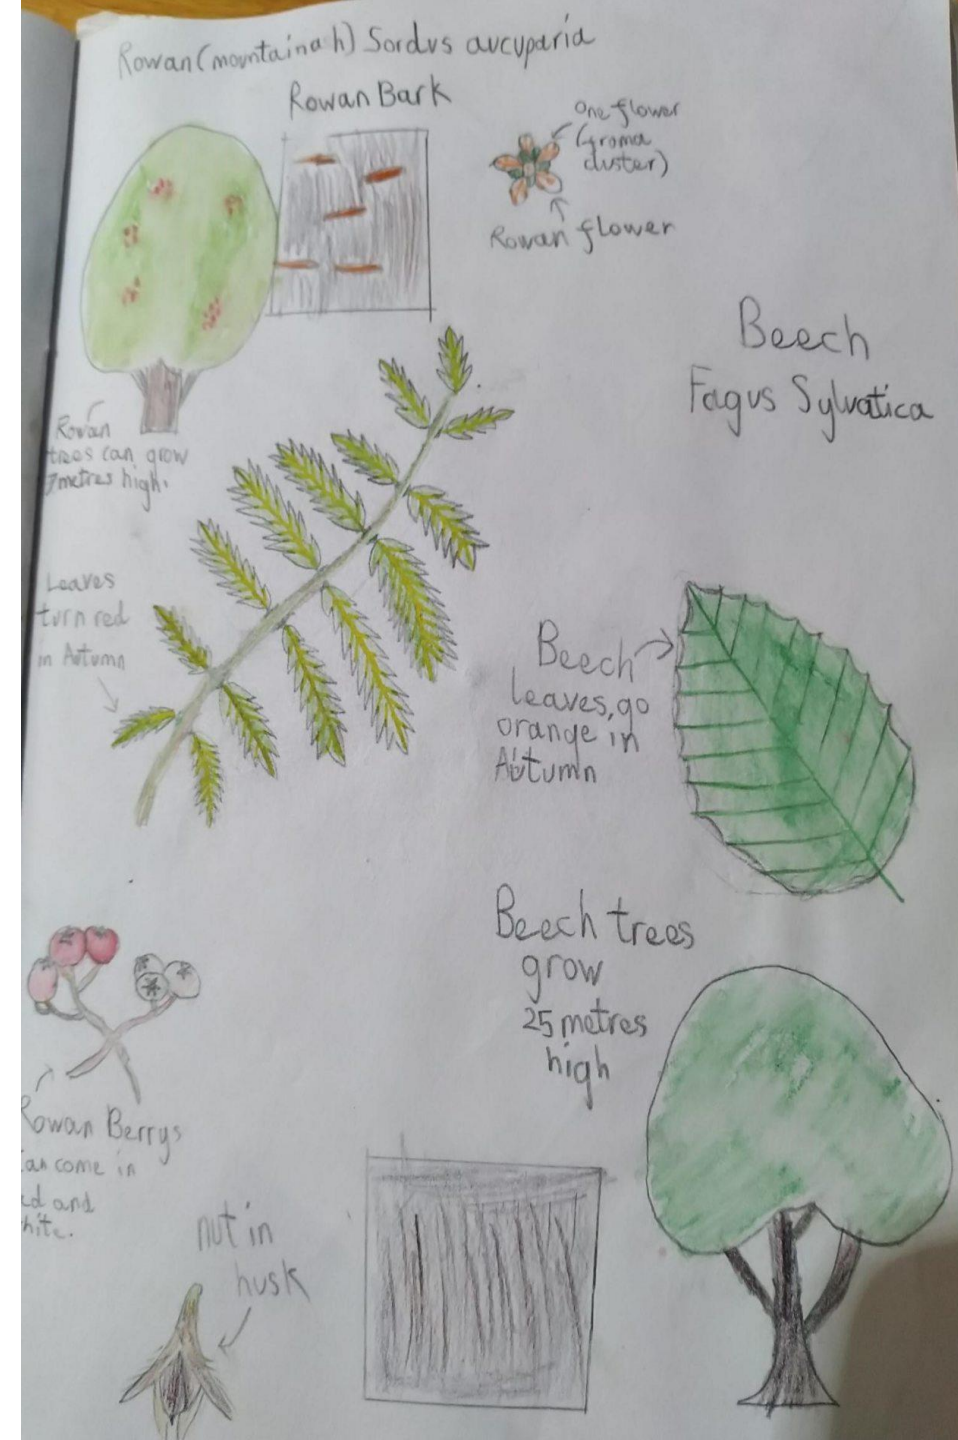 Rowan (mountaina h) Sordus aucuparia
Rowan Bark
One flower
(froma
cluster)
Rowan flower
Rowan
trees can grow
7metres high.
Leaves
turn red
in Autumn
Beech
Fagus Sylvatica
Beech
leaves, go
orange in
Autumn
Beech trees
grow
25 metres
high
Rowan Berrys
can come in
and
nut in
husk